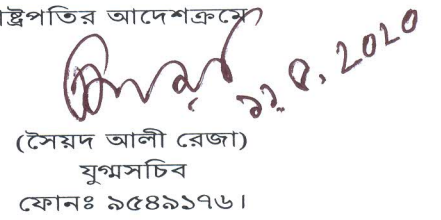 ষ্ট্রপতির আদেশক্রমে
১১.৫.2020
(সৈয়দ আলী রেজা)
যুগ্মসচিব
ফোনঃ ৯৫৪৯১৭৬।